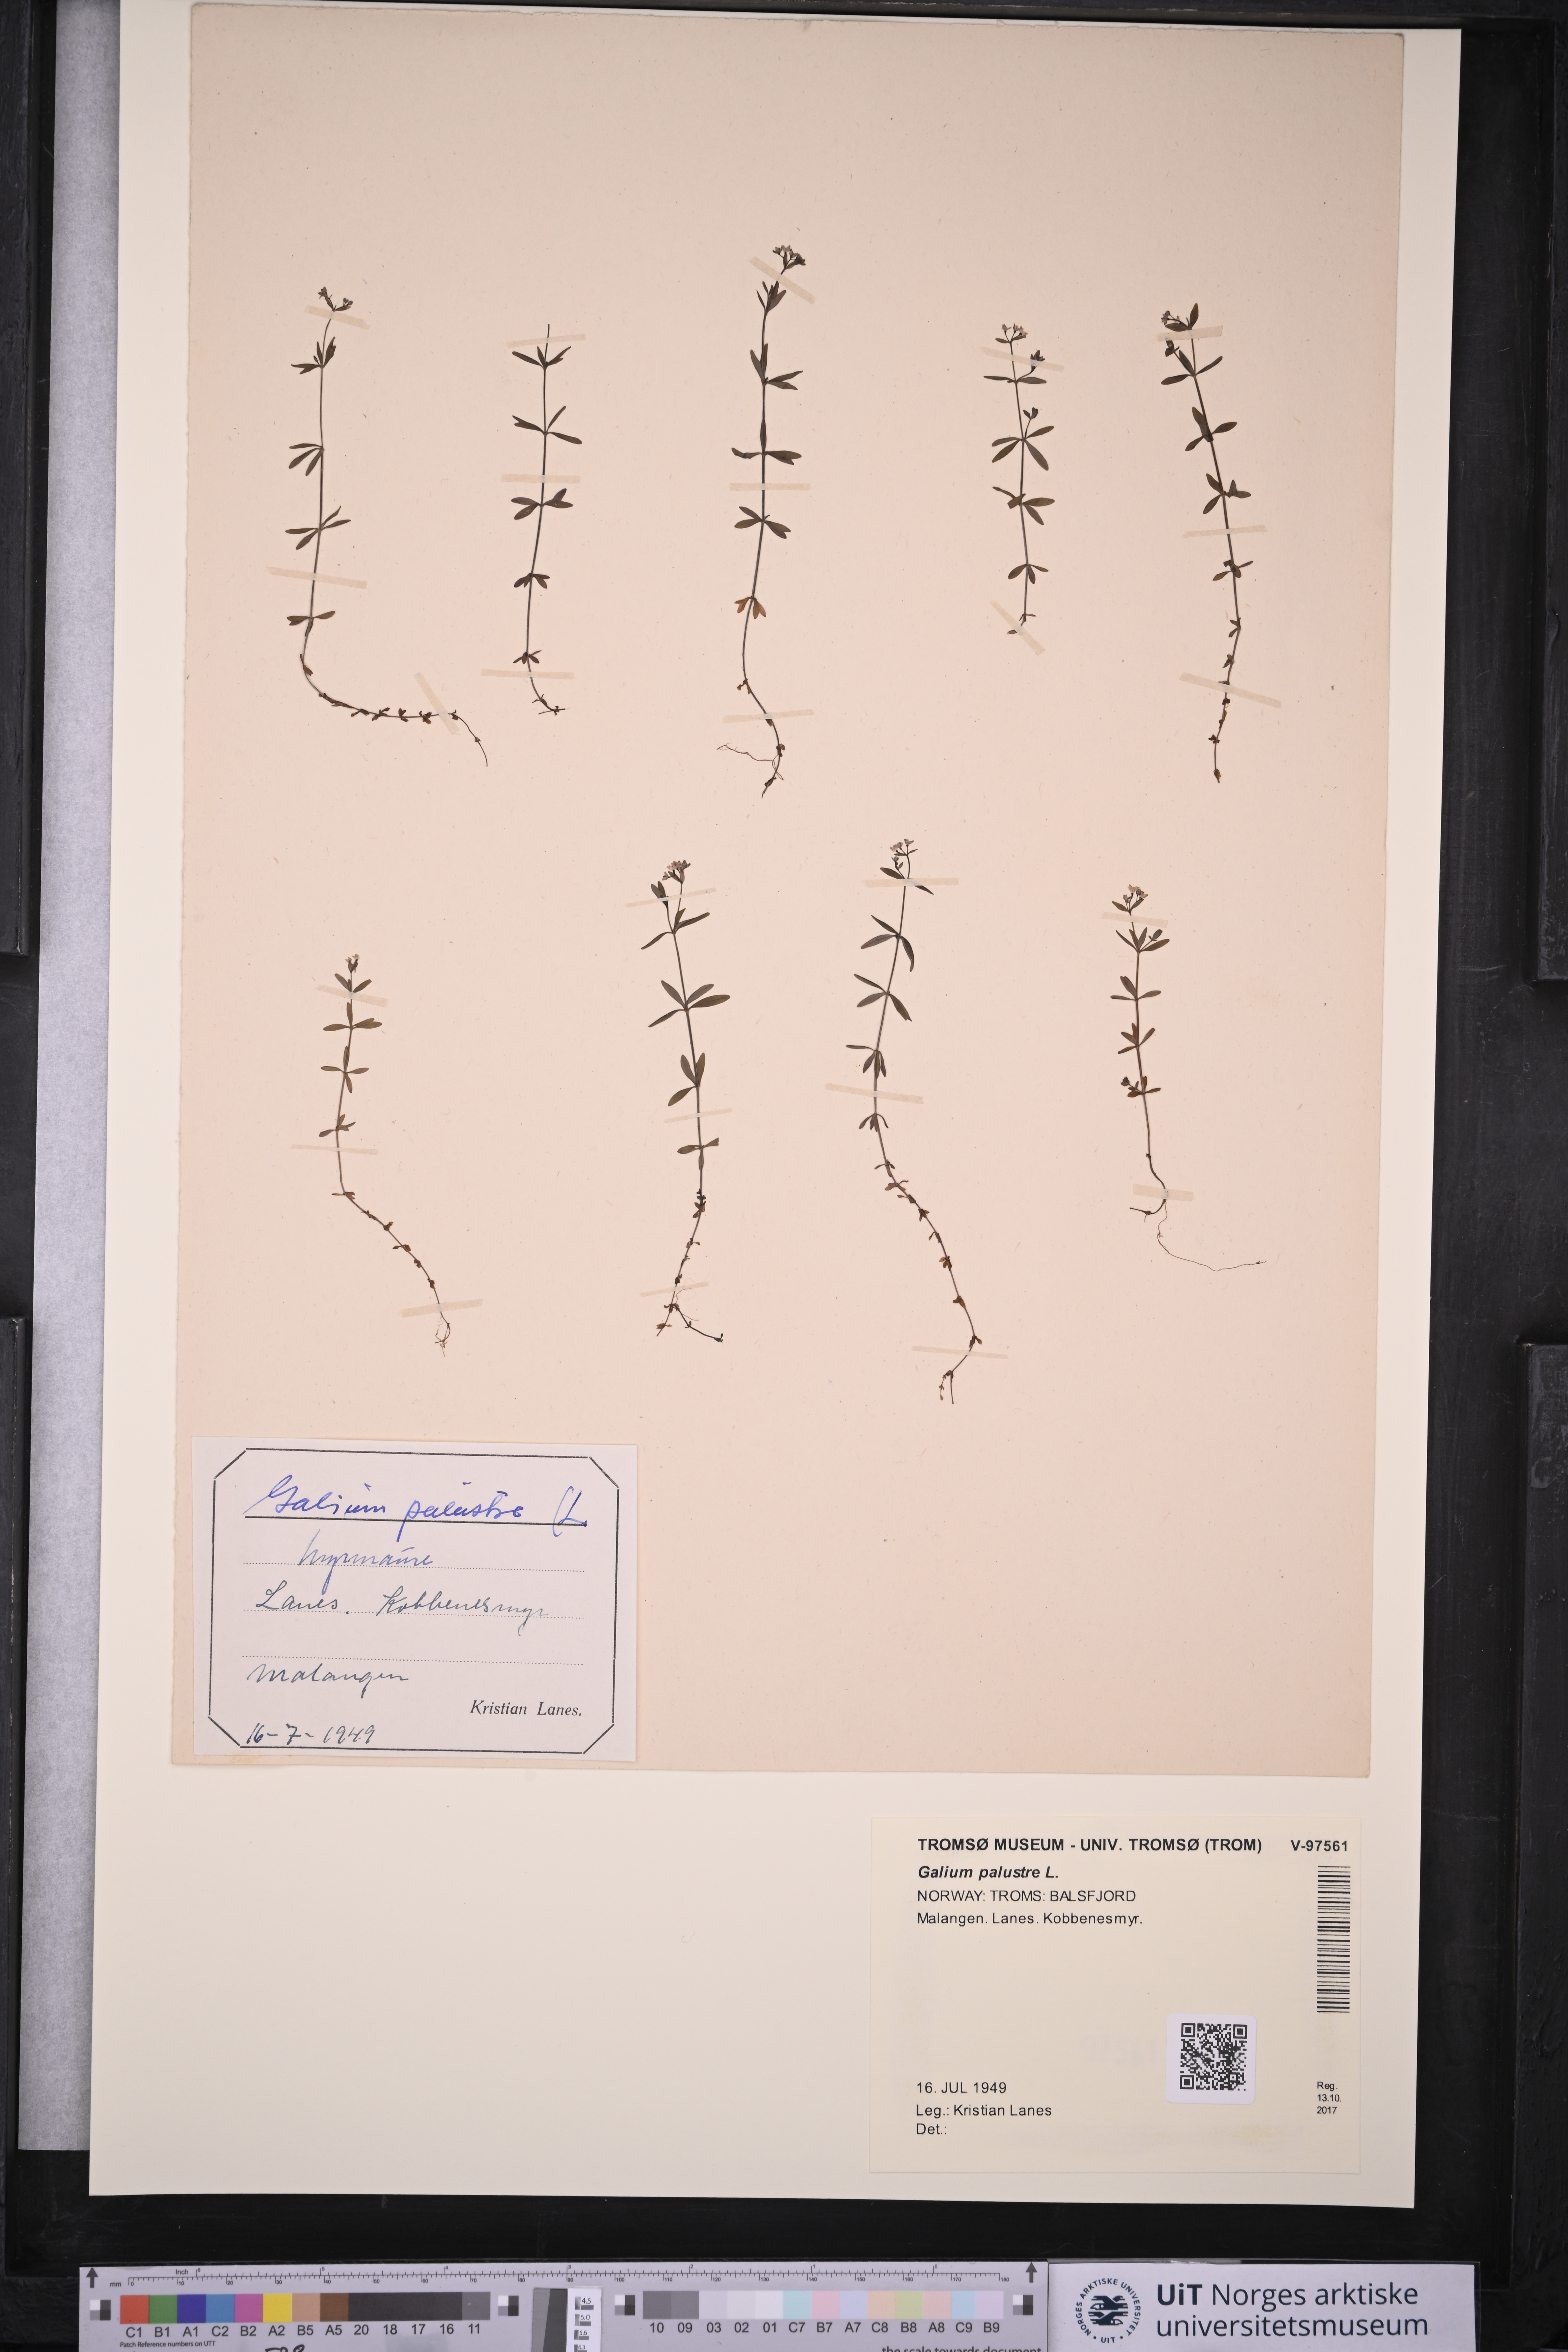 Galium palustre (L.
Myrmaure
Lanes. Kobbenesmyr
Malangen
Kristian Lanes.
16-7-1949
TROMSØ MUSEUM - UNIV. TROMSØ (TROM) V-97561
Galium palustre L.
NORWAY: TROMS: BALSFJORD
Malangen. Lanes. Kobbenesmyr.
16. JUL 1949
Leg.: Kristian Lanes
Det.:
Reg.
13.10.
2017
mm Inch
C1 B1 A1 C2 B2 A2 B5 A5 20 18 17 16 11
10 09 03 02 01 C7 B7 A7 C8 B8 A8 C9 B9
Patch Reference numbers on UTT
the scale towards document
4.5
5.0
NORGES ARKTISKE UNIVERSITET
UIT
UiT Norges arktiske
universitetsmuseum